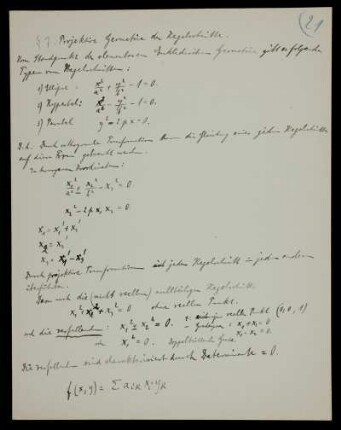 21
§ 7. Projektive Geometrie der Kegelschnitte.
Vom Standpunkte der elementaren Euklidischen Geometrie gibt es folgende
Typen von Kegelschnitten:
1) Ellipse: x²/a² + y²/b² - 1 = 0.
2) Hyperbel: x²/a² - y²/b² - 1 = 0.
3) Parabel y² - 2px = 0.
D.h. Durch orthogonale Transformation kann die Gleichung eines jeden Kegelschnittes
auf diese Form gebracht werden.
In homogenen Koordinaten:
x₁²/a² ± x₂²/b² - x₃² = 0
x₂² - 2p x₁ x₃ = 0
x₁ = x₁' + x₃'
x₂ = x₂'
x₃ = x₁' - x₃'
Durch projektive Transformation ist jeder Kegelschnitt in jeden anderen
überführbar.
Dazu noch die (nicht reellen) nullteiligen Kegelschnitte
x₁² + x₂² + x₃² = 0 ohne reellen Punkt.
und die zerfallenden: x₁² ± x₂² = 0. reeller Punkt (0, 0, 1)
- Geraden: x₁ + x₂ = 0
x₁ - x₂ = 0
x₁² = 0. Doppeltzählende Gerade.
Die zerfallenden sind charakterisiert durch Determinante = 0.
f(x, y) = Σ aᵢₖ xᵢ yₖ